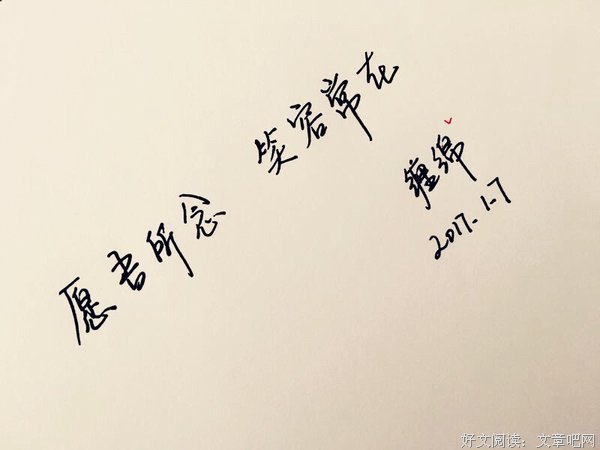 愿吾所念 笑容常在
缠绵
2017.1.7
好文阅读：文章吧网